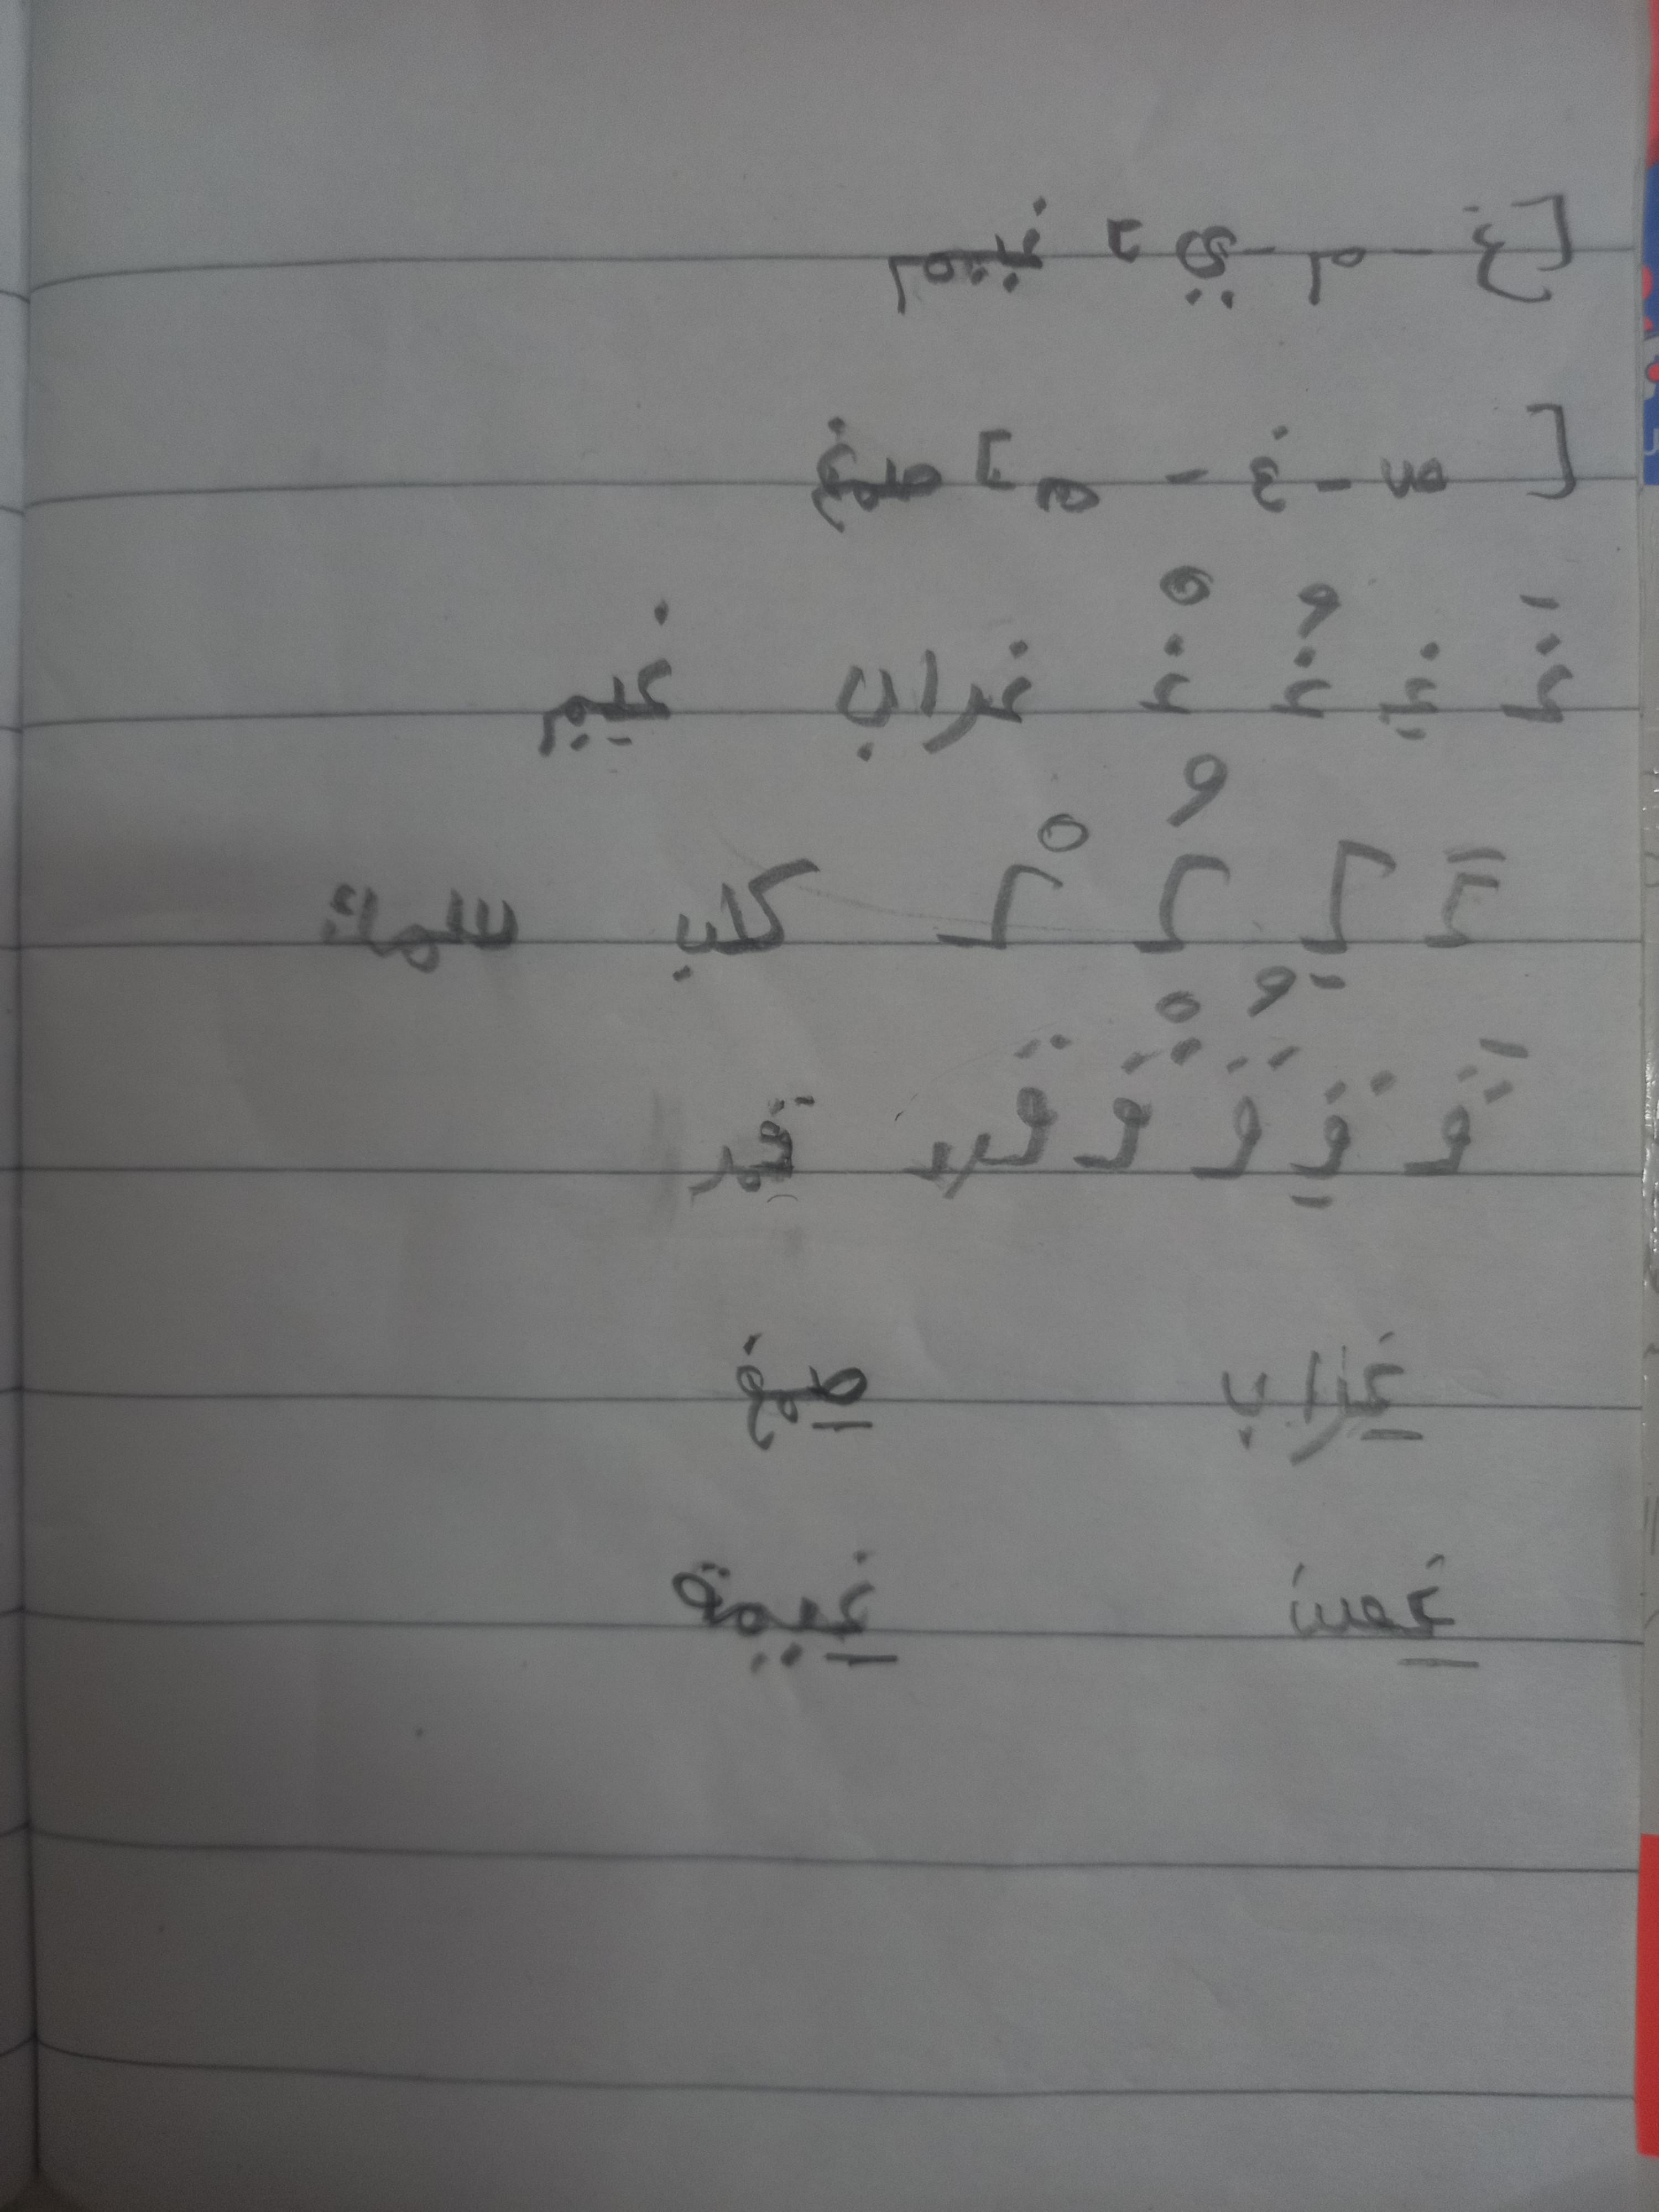 [غ - م - ي] غيم
[ص - غ - م] صمغ
غَ غِ غُ غْ غراب غيم
كَ كِ كُ كْ كلب سمك
قَ قِ قُ قْ قرد قمر
غراب صمغ
غصن غيمة